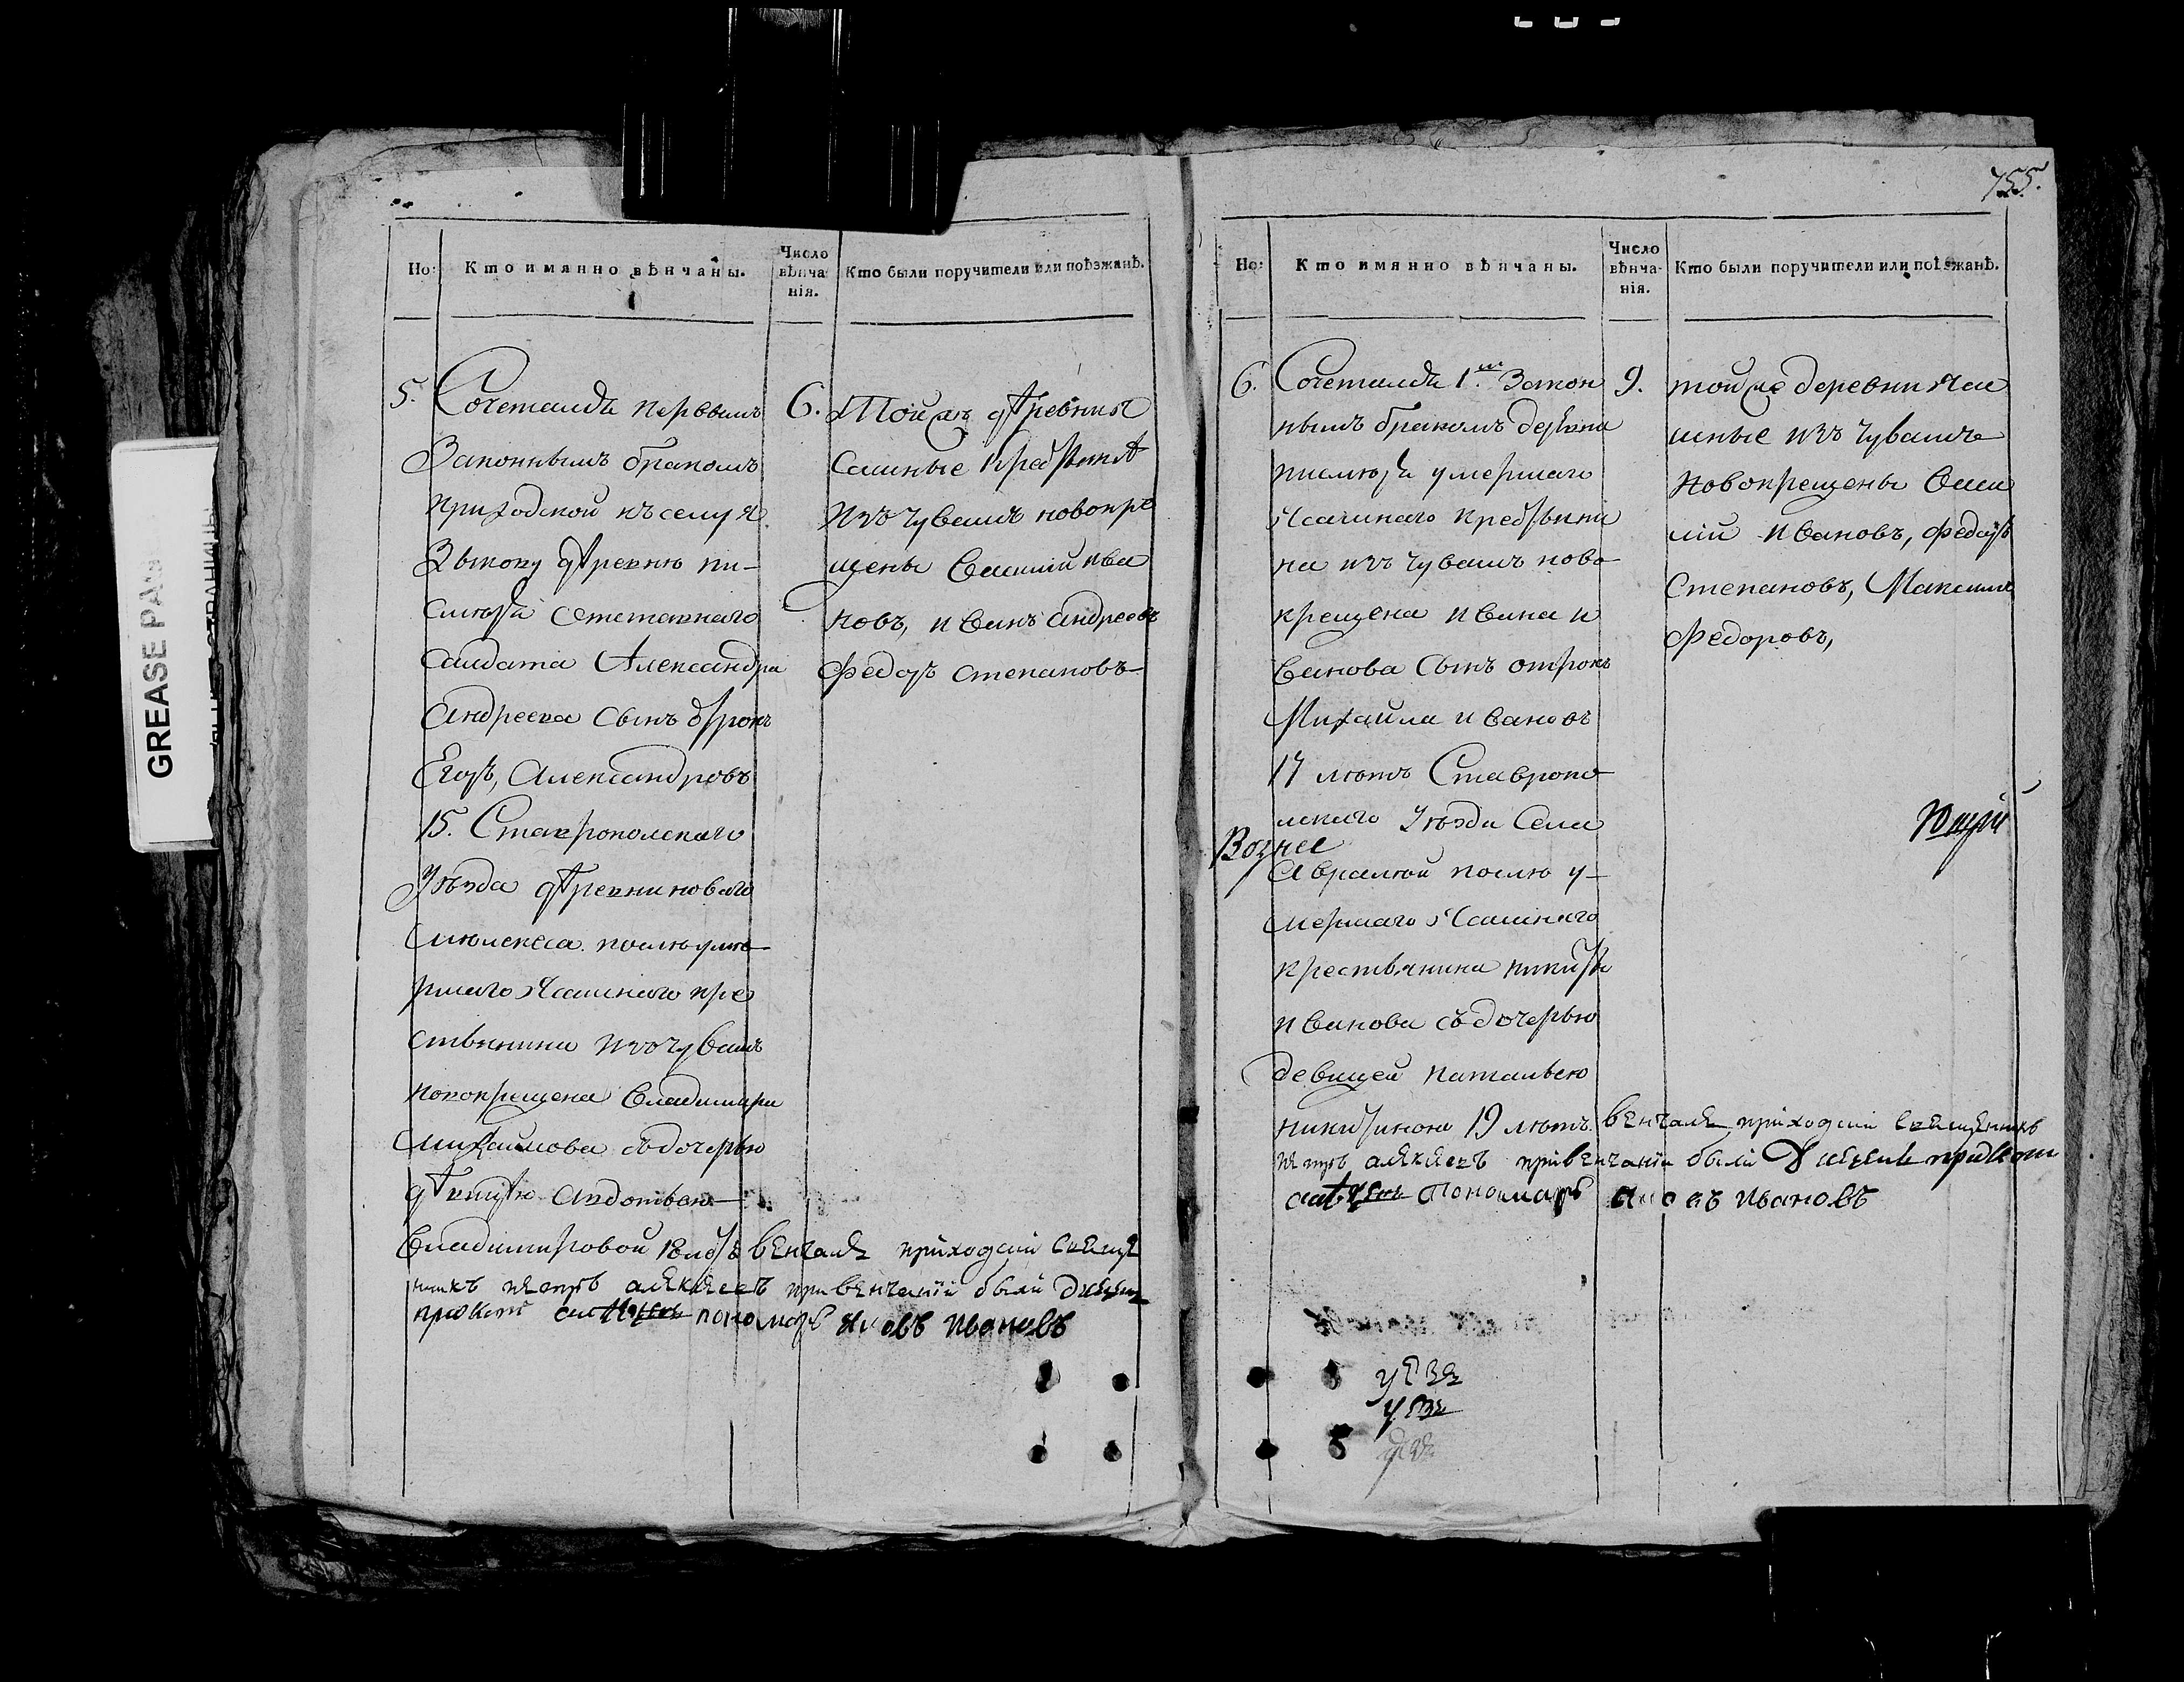 755.
Но:
Кто имянно вѣнчаны.
Число вѣнча нія.
Кто были поручители или поѣзжанѣ.
5.
Сочетался первымъ
Законнымъ бракомъ
приходской къ селу я
Зыкову деревни пи-
смюря отставнаго
салдата Александра
Андреева сынъ отрокъ
Егоръ, Александровъ
15. Ставрополскаго
Уѣзда деревни новаго
смолькеса послѣ уме-
ршаго Ясашнаго кре
стьянина изъ чувашъ
новокрещена Владимира
михайлова съ дочерью
девицею Авдотьею
Владимировой 18 лѣтъ венчалъ приходскій Свяще
никъ петръ алексеевъ при венчаніи были дьячекъ
прокопій пономарь яковъ Ивановъ
6.
Той же деревни я
сашные крестьяне
изъ чувашъ новокре
щены Василій ива
новъ, иванъ андреевъ
Федоръ степановъ
Но:
Кто имянно вѣнчаны.
Число вѣнча- нія.
Кто были поручители или поѣзжанѣ.
6.
Сочетался 1.й Закон
нымъ бракомъ деревни
писмюря умершаго
Ясашнаго крестьяни
на изъ чувашъ ново
крещена ивана и
ванова сынъ отрокъ
Михайла ивановъ
17 лѣтъ Ставропо
лскаго Уѣзда Села
Вознес
Авралкой послѣ у-
мершаго Ясашнаго
крестьянина никиты
иванова съ дочерью
девицей натальею
никитиною 19 лѣтъ венчалъ приходскій Священникъ
петръ алексеевъ при венчаніи были дьячекъ прокопи
пономарь яковъ ивановъ
9.
той же деревни Яса
шные изъ чувашъ
новокрещены Васи
лій Ивановъ, Федоръ
Степановъ, Максимъ
Федоровъ,